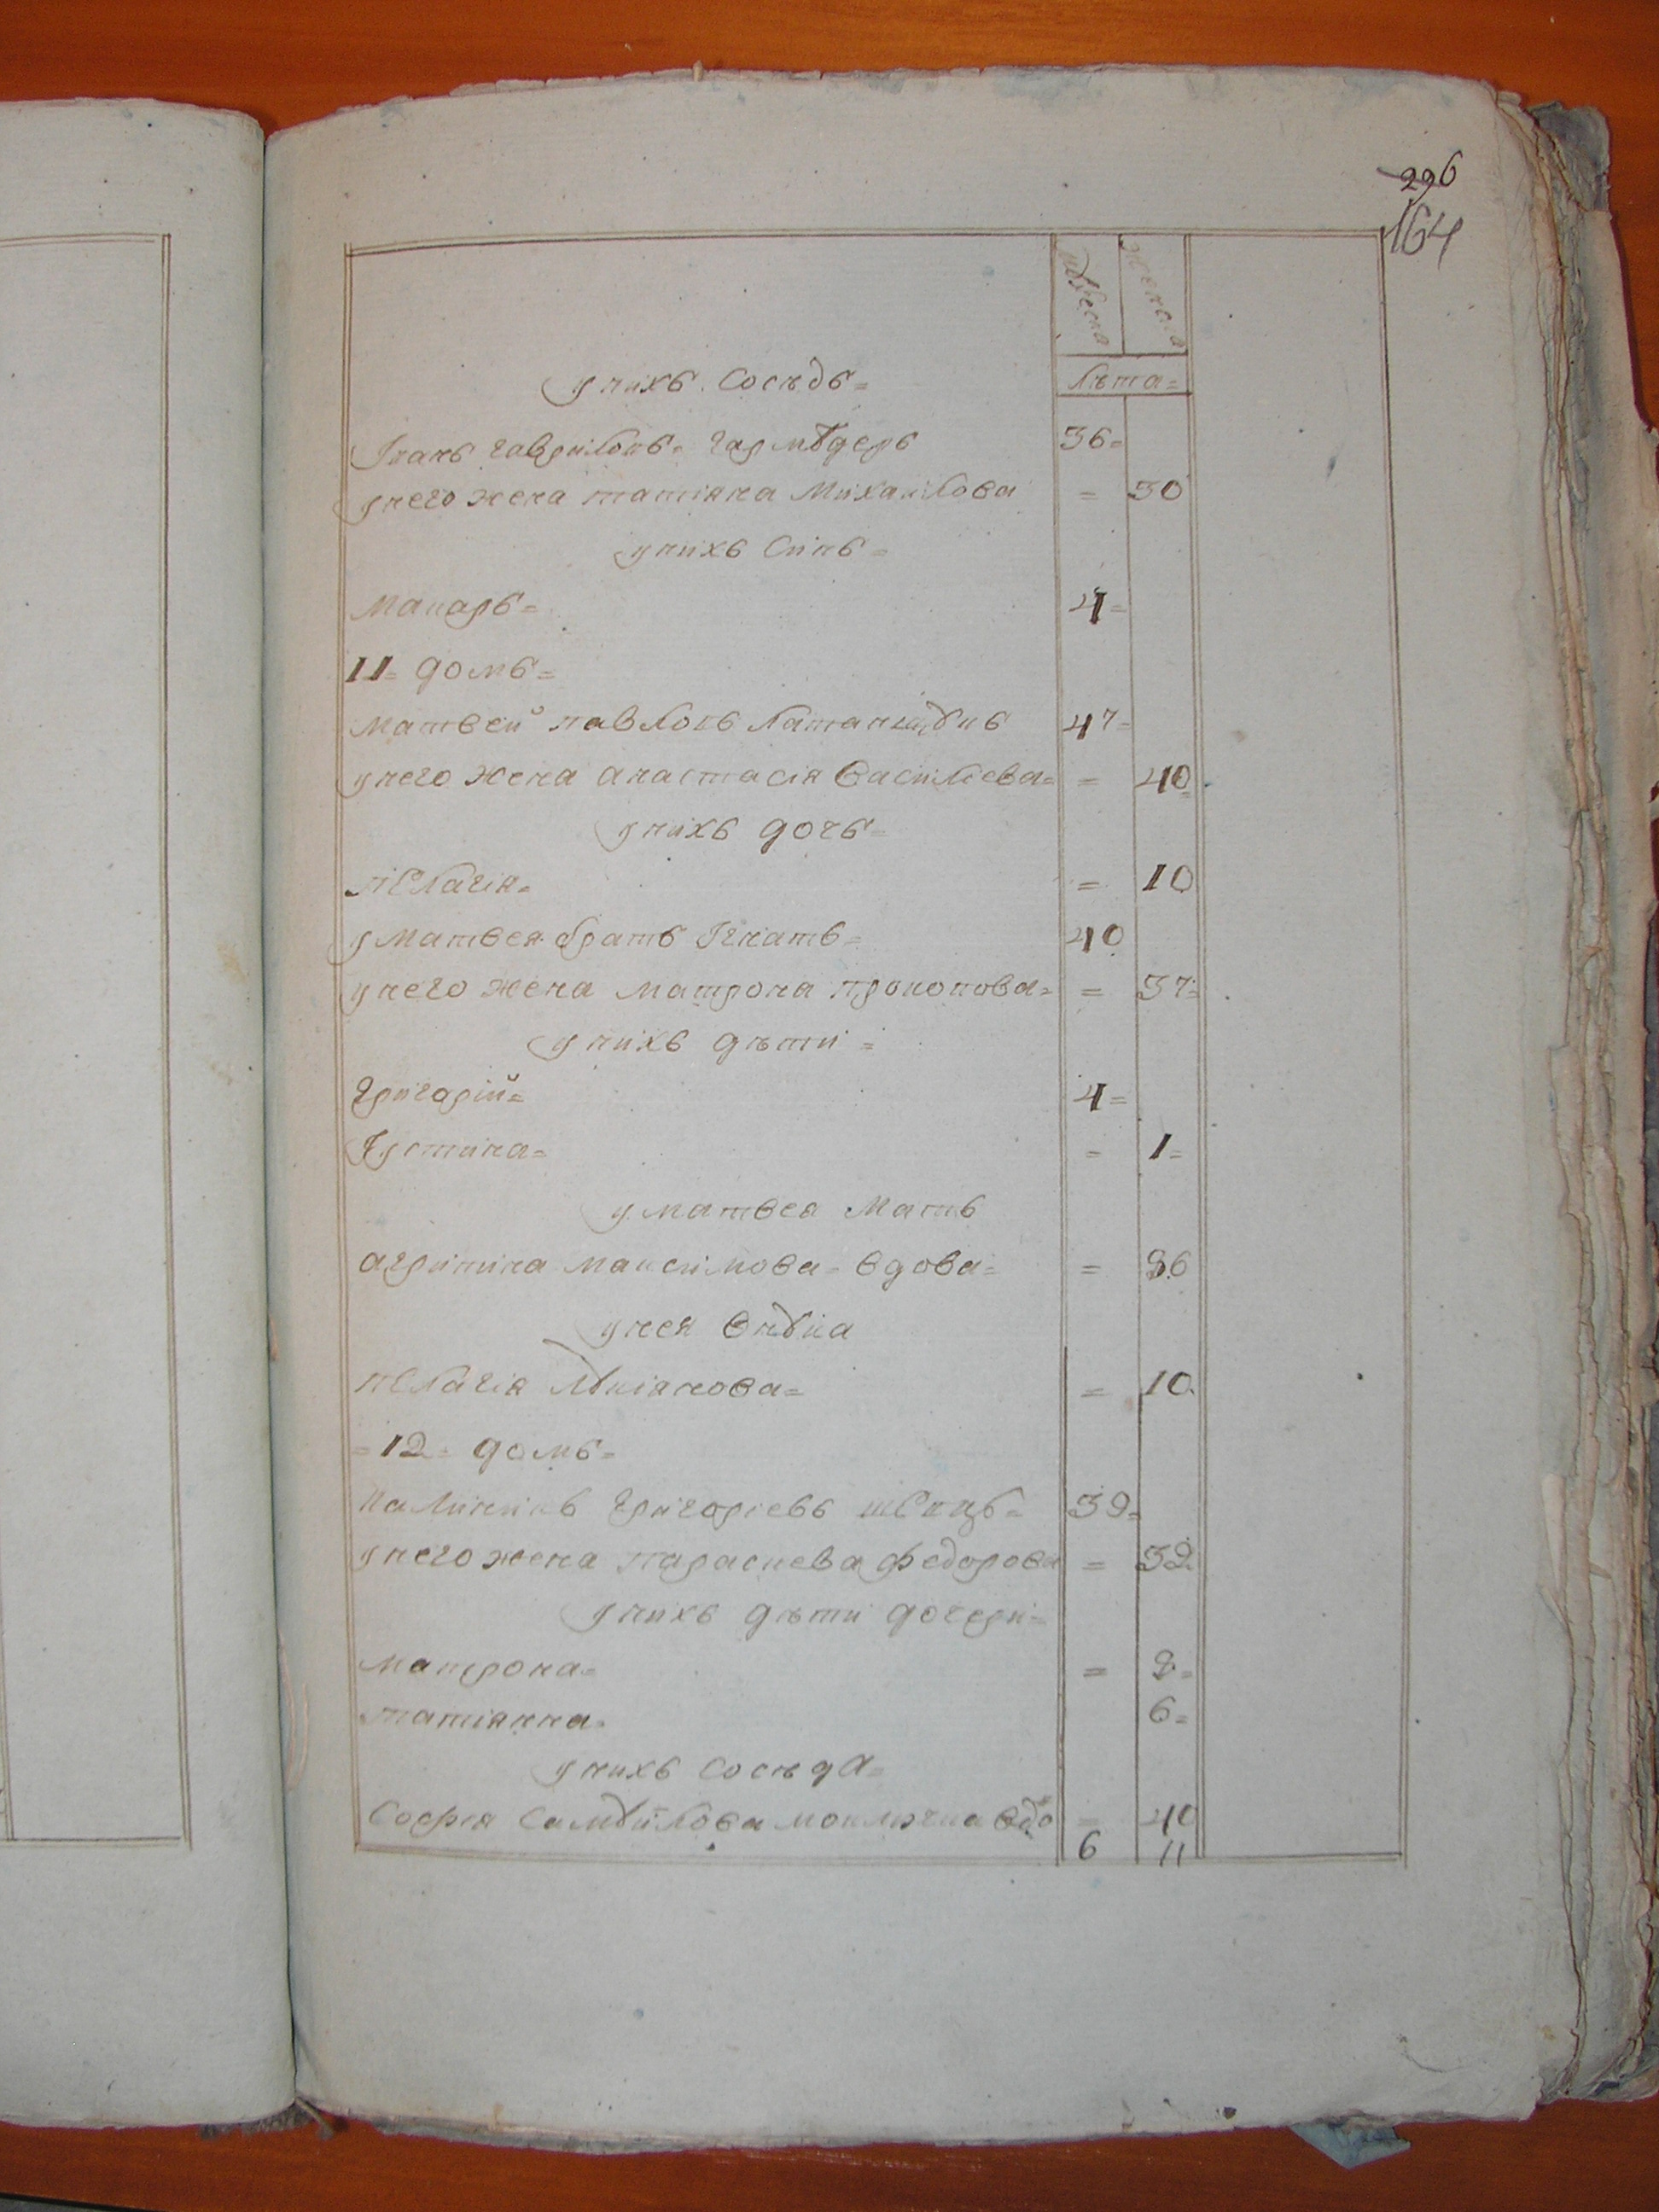 296
164
мужеска женска
Лѣта=
у нихъ сосѣдъ=
Іванъ Гавриловъ= 36=
у него жена татіяна Михаилова = 30
у нихъ синъ=
Макаръ= 4=
11= домъ=
Матвей павловъ 47=
у него жена анастасія василиева= = 40
у нихъ дочь=
пелагія= = 10
у Матвея братъ Ігнатъ= 40
у него жена матрона прокопова= = 37=
у нихъ дѣти=
Григорій= 4=
Іустина= = 1=
у матвея мать
агрипина максимова= вдова= = 86
у нея внука
пелагія = 10
=12= домъ=
калиникъ григориевъ швецъ= 39=
у него жена параскева федорова = 32
у нихъ дѣти дочери=
матрона= = 8=
татіянна= 6=
у нихъ сосѣда=
Софія самуилова вдо = 40
6 11